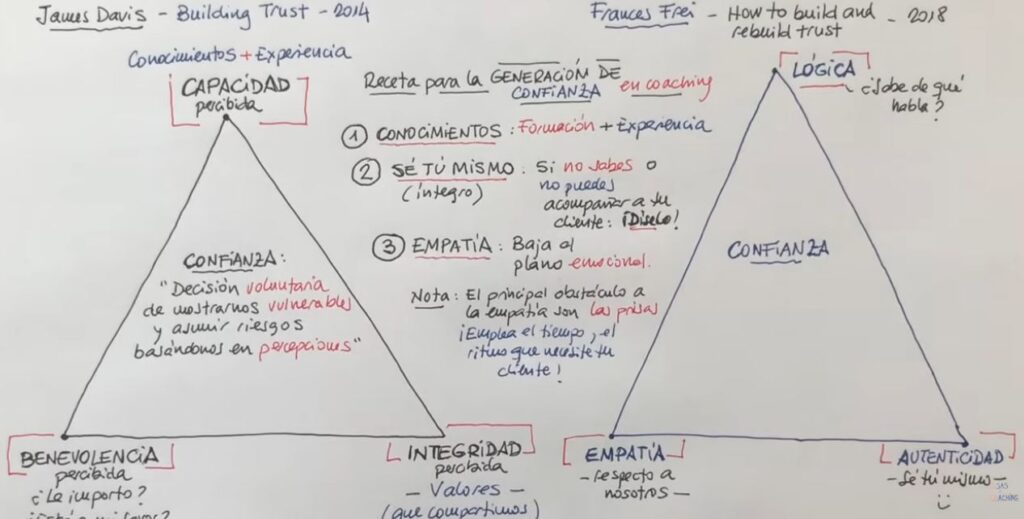 James Davis - Building Trust - 2014
Conocimientos + Experiencia
CAPACIDAD
percibida
CONFIANZA:
"Decisión voluntaria
de mostrarnos vulnerables
y asumir riesgos
basándonos en percepciones"
BENEVOLENCIA
percibida
¿Le importo?
INTEGRIDAD
percibida
- Valores -
(que compartimos)
Receta para la GENERACIÓN DE
CONFIANZA en coaching
1 CONOCIMIENTOS: Formación + Experiencia
2 SÉ TÚ MISMO: Si no sabes o
(íntegro) no puedes
acompañar a tu
cliente: ¡Díselo!
3 EMPATÍA: Baja al
plano emocional.
Nota: El principal obstáculo a
la empatía son las prisas
¡Emplea el tiempo, el
ritmo que necesite tu
cliente!
Frances Frei - How to build and - 2018
rebuild trust
LÓGICA
¿Sabe de qué
habla?
CONFIANZA
EMPATÍA
- respecto a
nosotros -
AUTENTICIDAD
- Sé tú mismo -